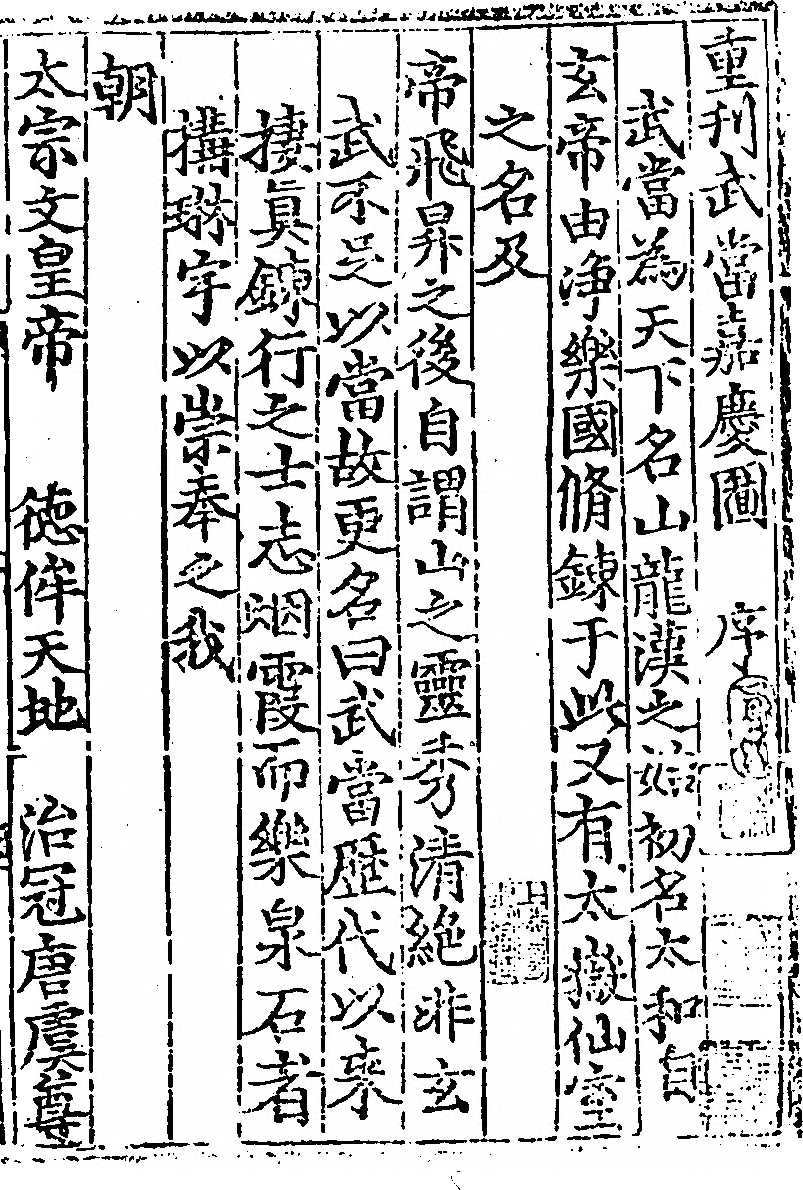 重刋武當嘉慶圖 序
武當為天下名山龍漢之始初名太和自
玄帝由淨樂國脩鍊于此又有太嶽仙室
之名及
帝飛昇之後自謂山之靈秀清絶非玄
武不足以當故更名曰武當歷代以來
捿眞鍊行之士志烟霞而樂泉石者
搆琳宇以崇奉之我
朝
太宗文皇帝 德侔天地 治冠唐虞尊